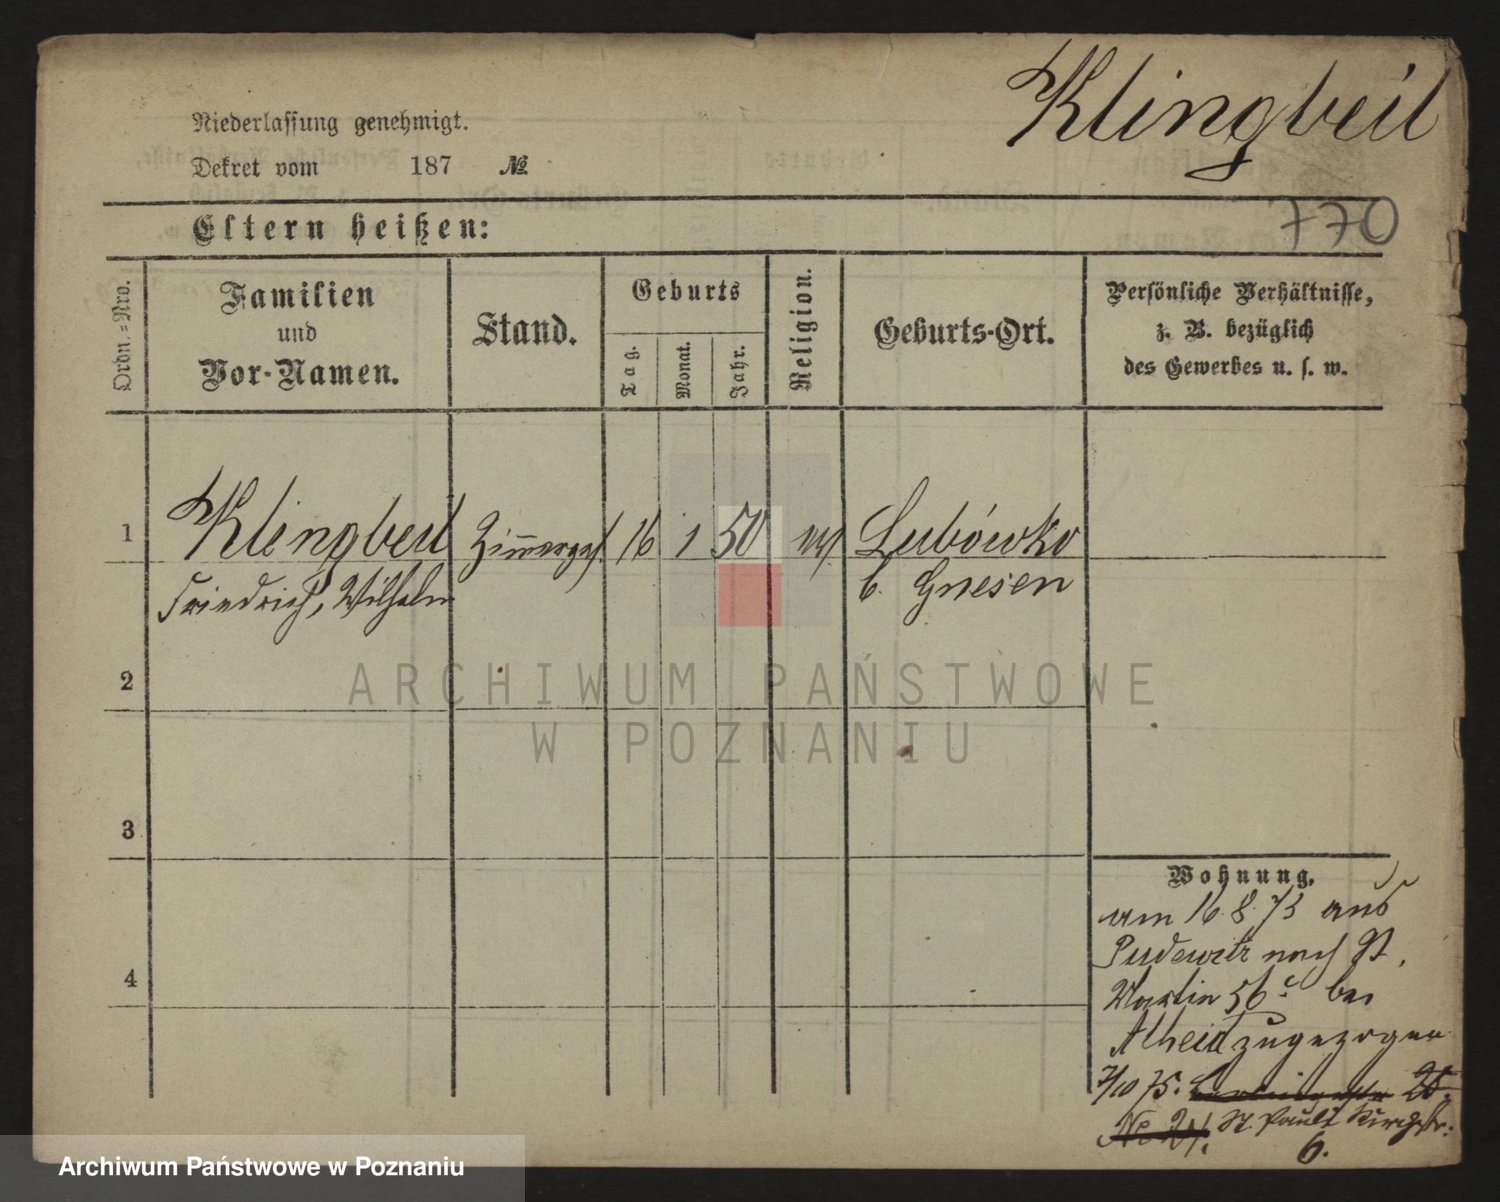 Klingbeil
Niederlassung genehmigt.
Dekret vom 187 №
770
Eltern heißen:
Ordn.=Nro.
Familien
und
Vor-Namen.
Stand.
Geburts
Tag.
Monat.
Jahr.
Religion.
Geburts-Ort.
Persönliche Verhältnisse,
z. B. bezüglich
des Gewerbes u. s. w.
1 Klingbeil Zimmerges. 16 1 50 ev. Lubówko
Friedrich, Wilhelm b. Gnesen
2
ARCHIWUM PAŃSTWOWE
W POZNANIU
3
Wohnung.
am 16.8.73 aus
Pudewitz nach St.
Martin 56 c bei
zugezogen
4
7/10 75.
St Pauli Kirchstr.
6.
Archiwum Państwowe w Poznaniu